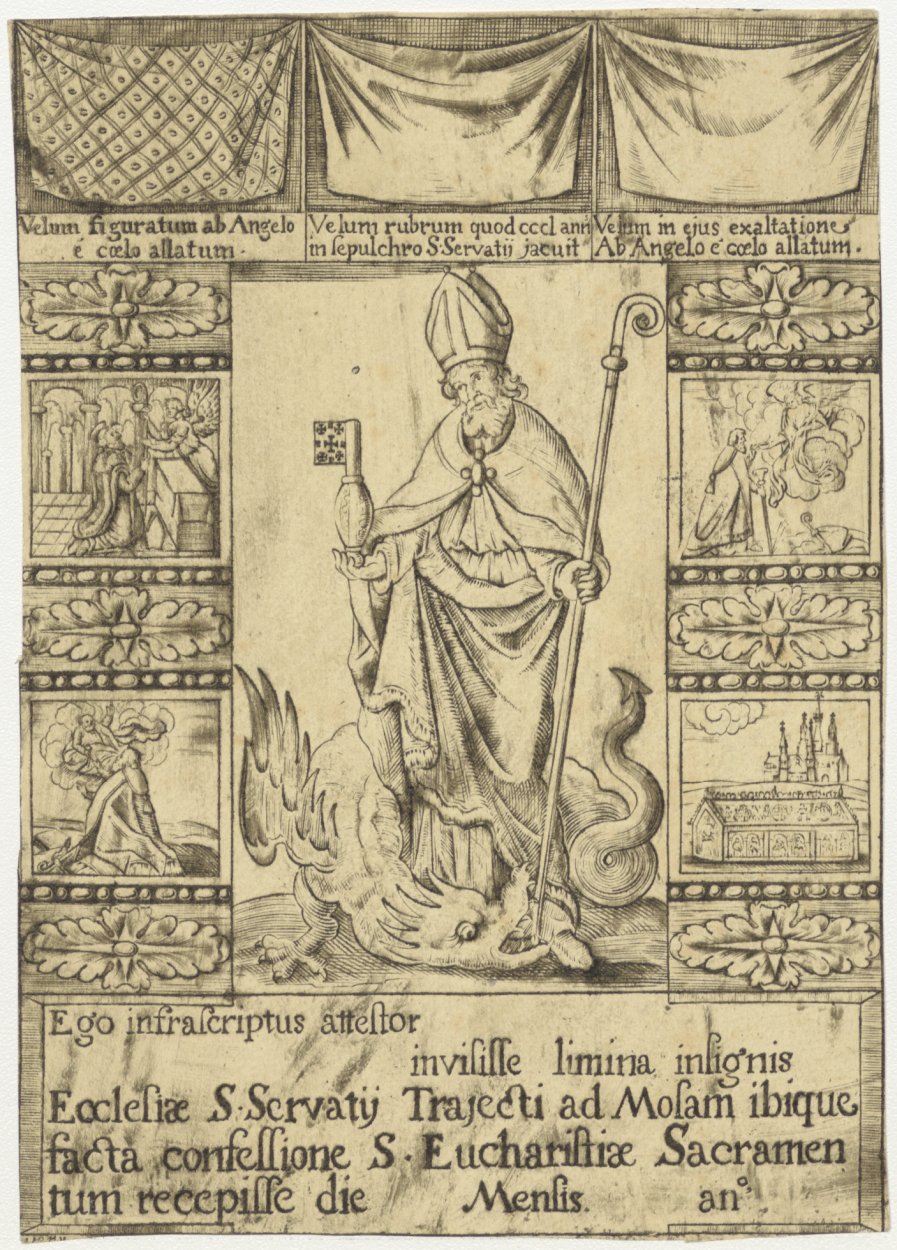 Velum figuratum ab Angelo
é cœlo allatum.
Velum rubrum quod cccl anñ
in ſepulchro S. Servatij jacuit
Velum in ejus exaltatione
Ab Angelo é cœlo allatum.
Ego infraſcriptus atteſtor
inviſiſſe limina inſignis
Eccleſiæ S. Servatij Trajecti ad Moſam ibique
facta confeſſione S. Euchariſtiæ Sacramen
tum recepiſſe die Menſis. an°.